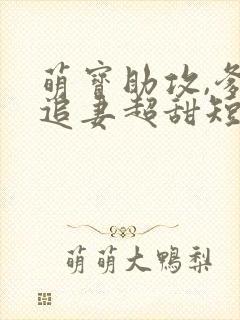 萌宝助攻,爹
追妻超甜短
萌萌大鸭梨